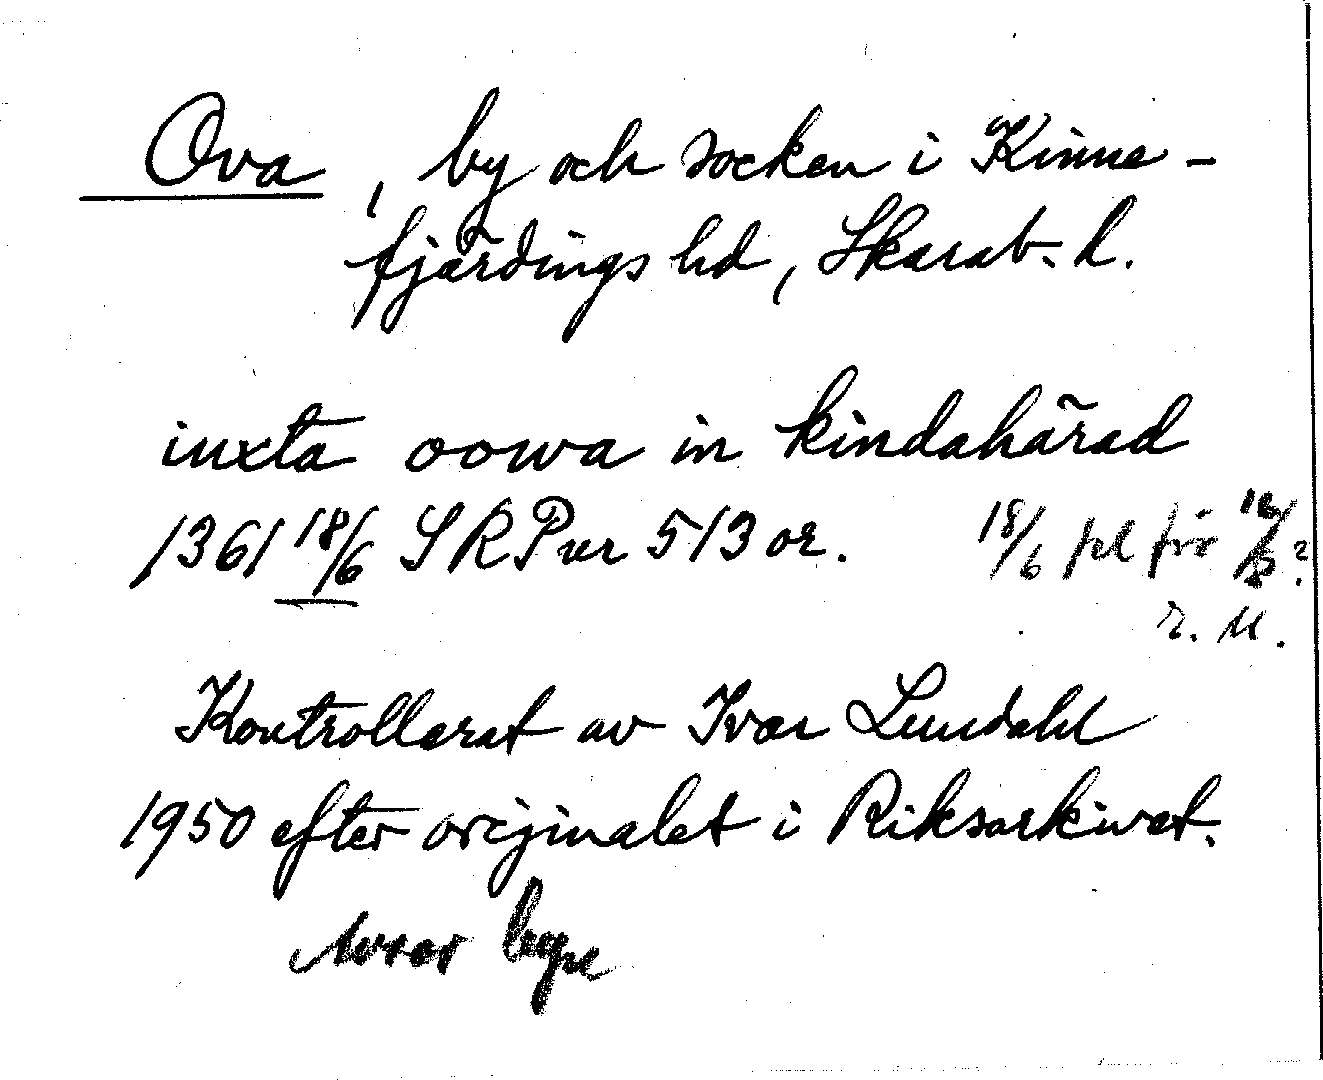 Ova, by och socken i Kinne-
fjärdings hd, Skarab. l.
iuxta oowa in kindahärad
1361 18/6 SRP nr 513 or.
18/6 fel för ?
R. M.
Kontrollerat av Ivar Lundahl
1950 efter originalet i Riksarkivet.
Avser byn